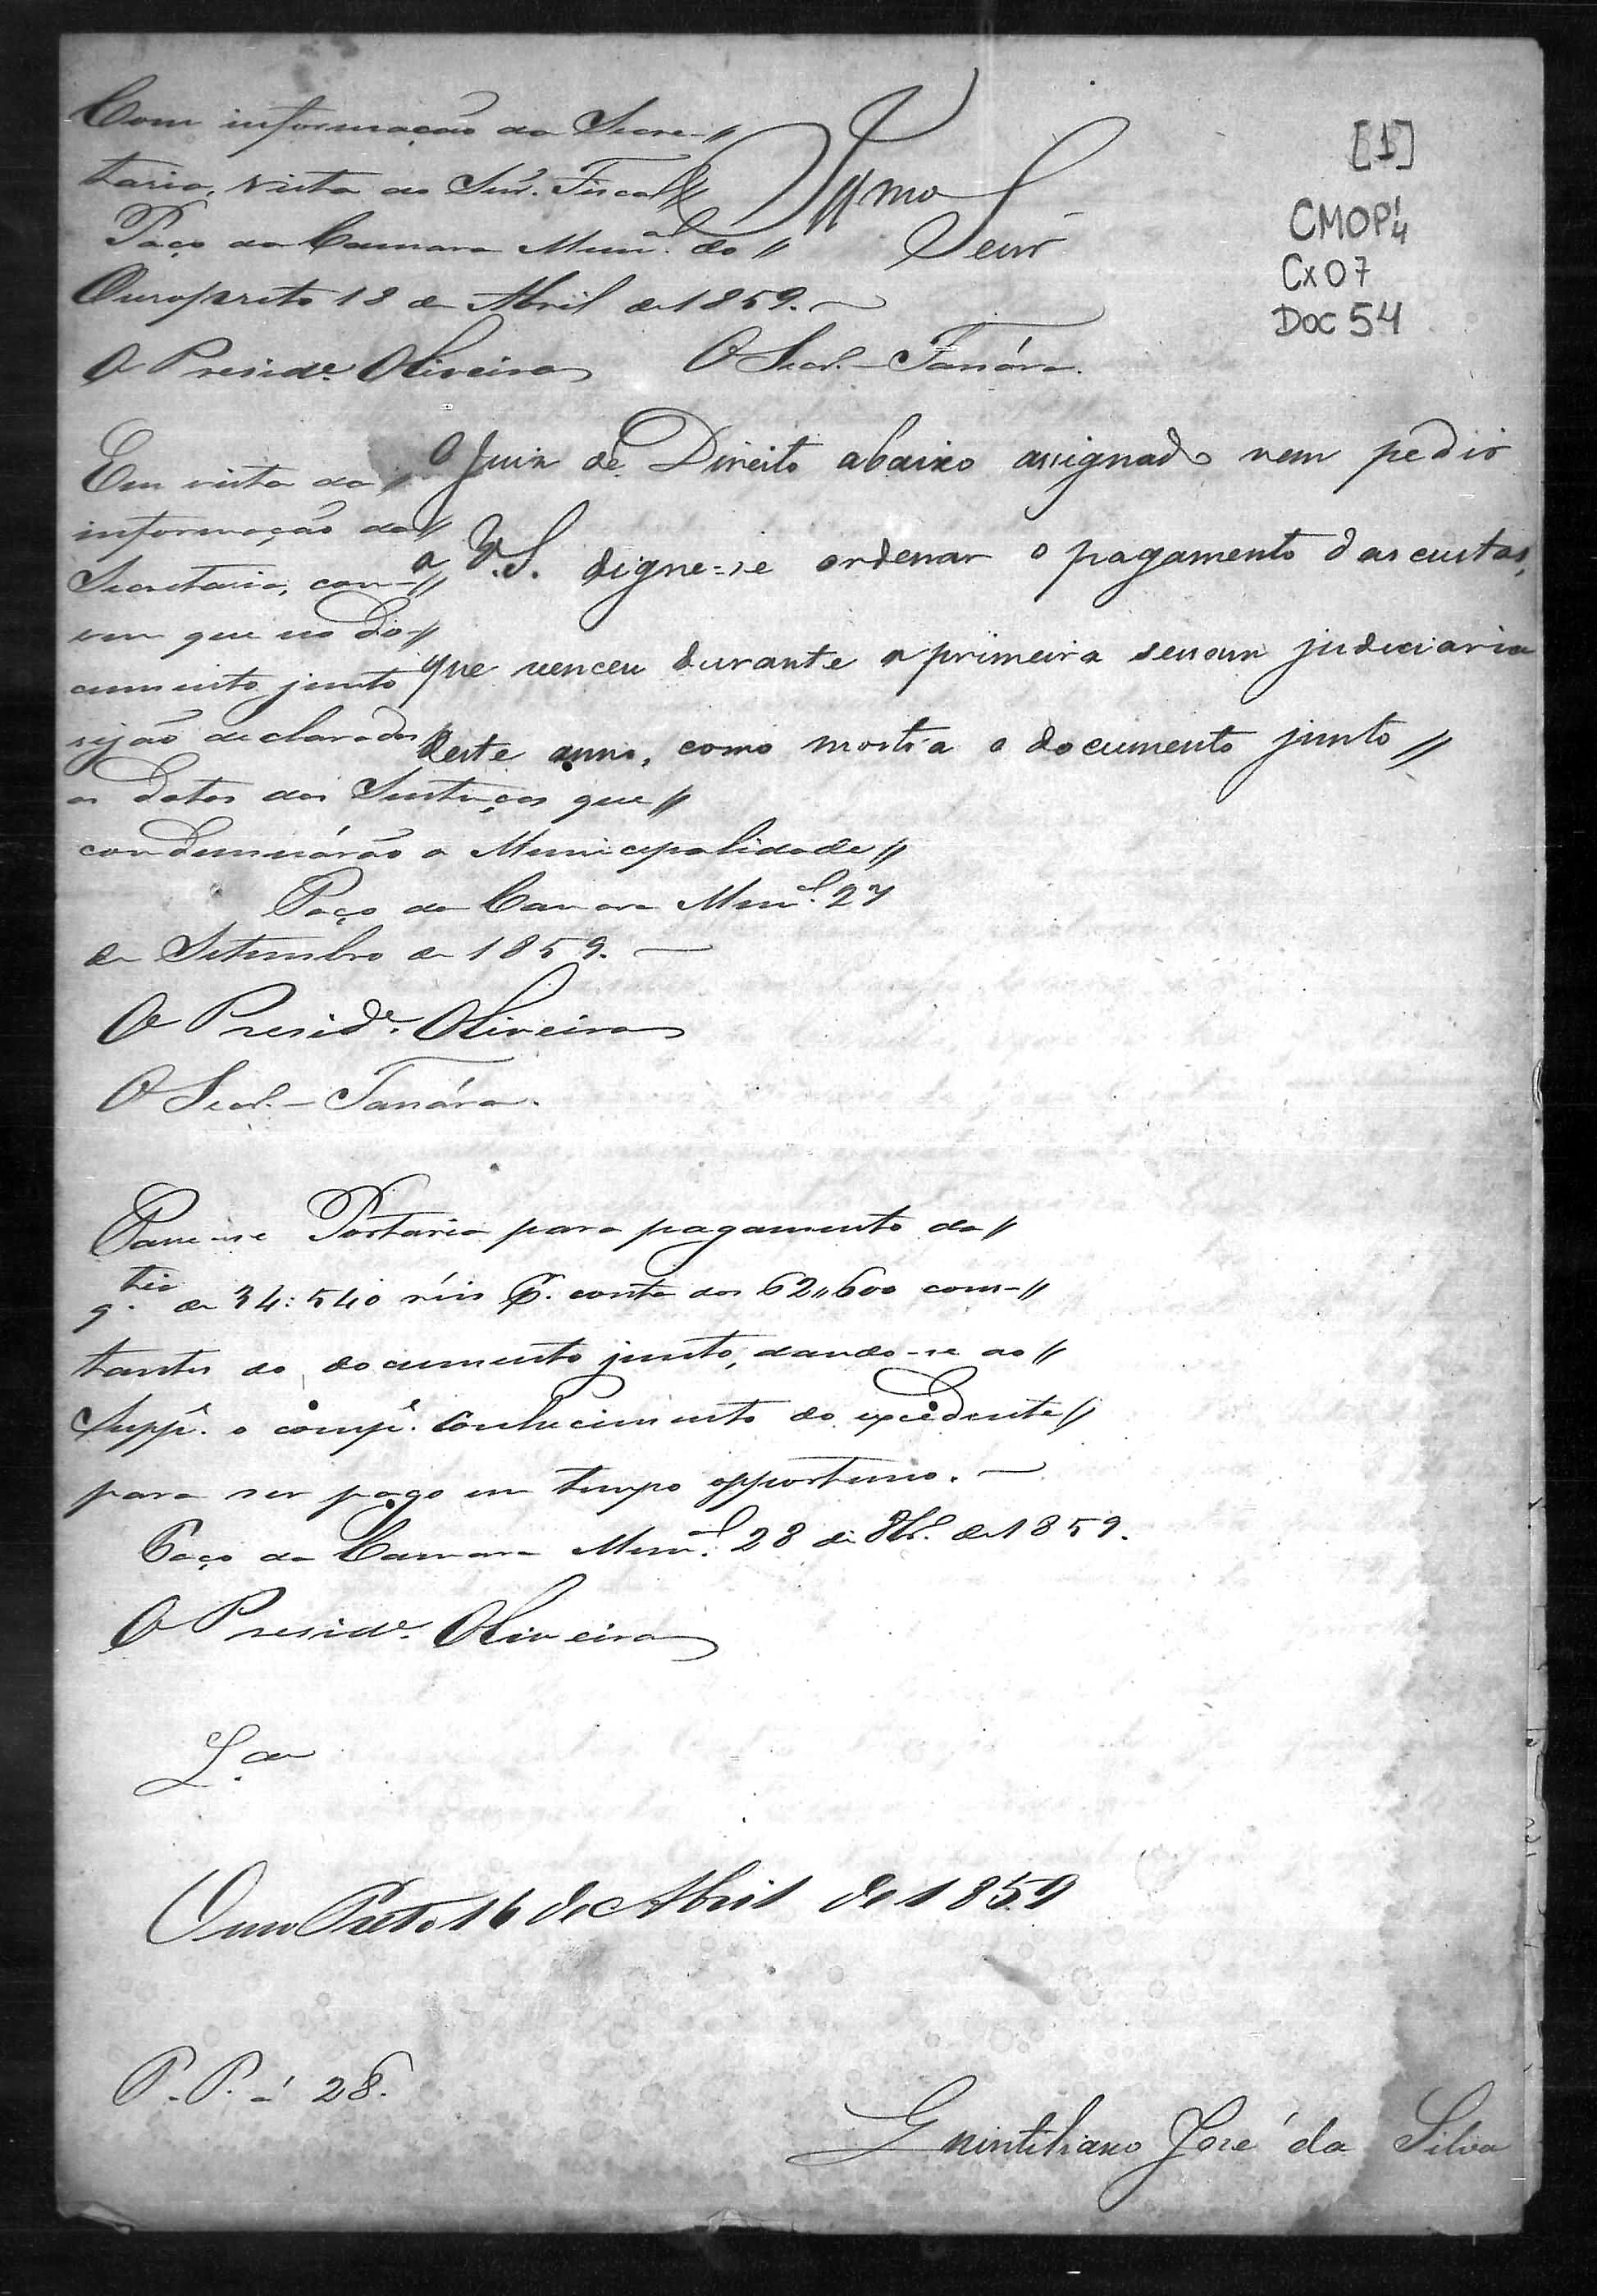 [1]
CMOP 1/4
Cx 07
Doc 54
Com informação da Secre-//
taria, vista ao Snr. Fiscal //
Paço da Camara Mun.al do //
Ouropreto 18 de Abril de 1859. —
O Presid.e Oliveira O Secr.
Illmo Senr
O Juiz de Direito abaixo assignado vem pedir
a V.S. digne-se ordenar o pagamento das custas,
que venceu durante a primeira sessam judiciaria
deste anno, como mostra o documento junto //
Em vista da //
informação da //
Secretaria, con-//
vem que no do-//
cumento junto
sejão declaradas
as datas das Sentenças que //
condemnárão a Municipalidade //
Paço da Camara Mun.al 27
de Setembro de 1859. —
O Presid.e Oliveira
O Secr.
Passe-se Portaria para pagamento da //
q.tia de 34:540 réis p.r conta dos 62,,600 cons-//
tantes do documento junto, dando-se ao //
Supp.e o comp.e conhecimento do excedente //
para ser pago em tempo opportuno. —
Paço da Camara Mun.al 28 de 8br.o de 1859.
O Presid.e Oliveira
L.da
Ouro Preto 16 de Abril de 1859
P. P. á 28.
Quintiliano José da Silva